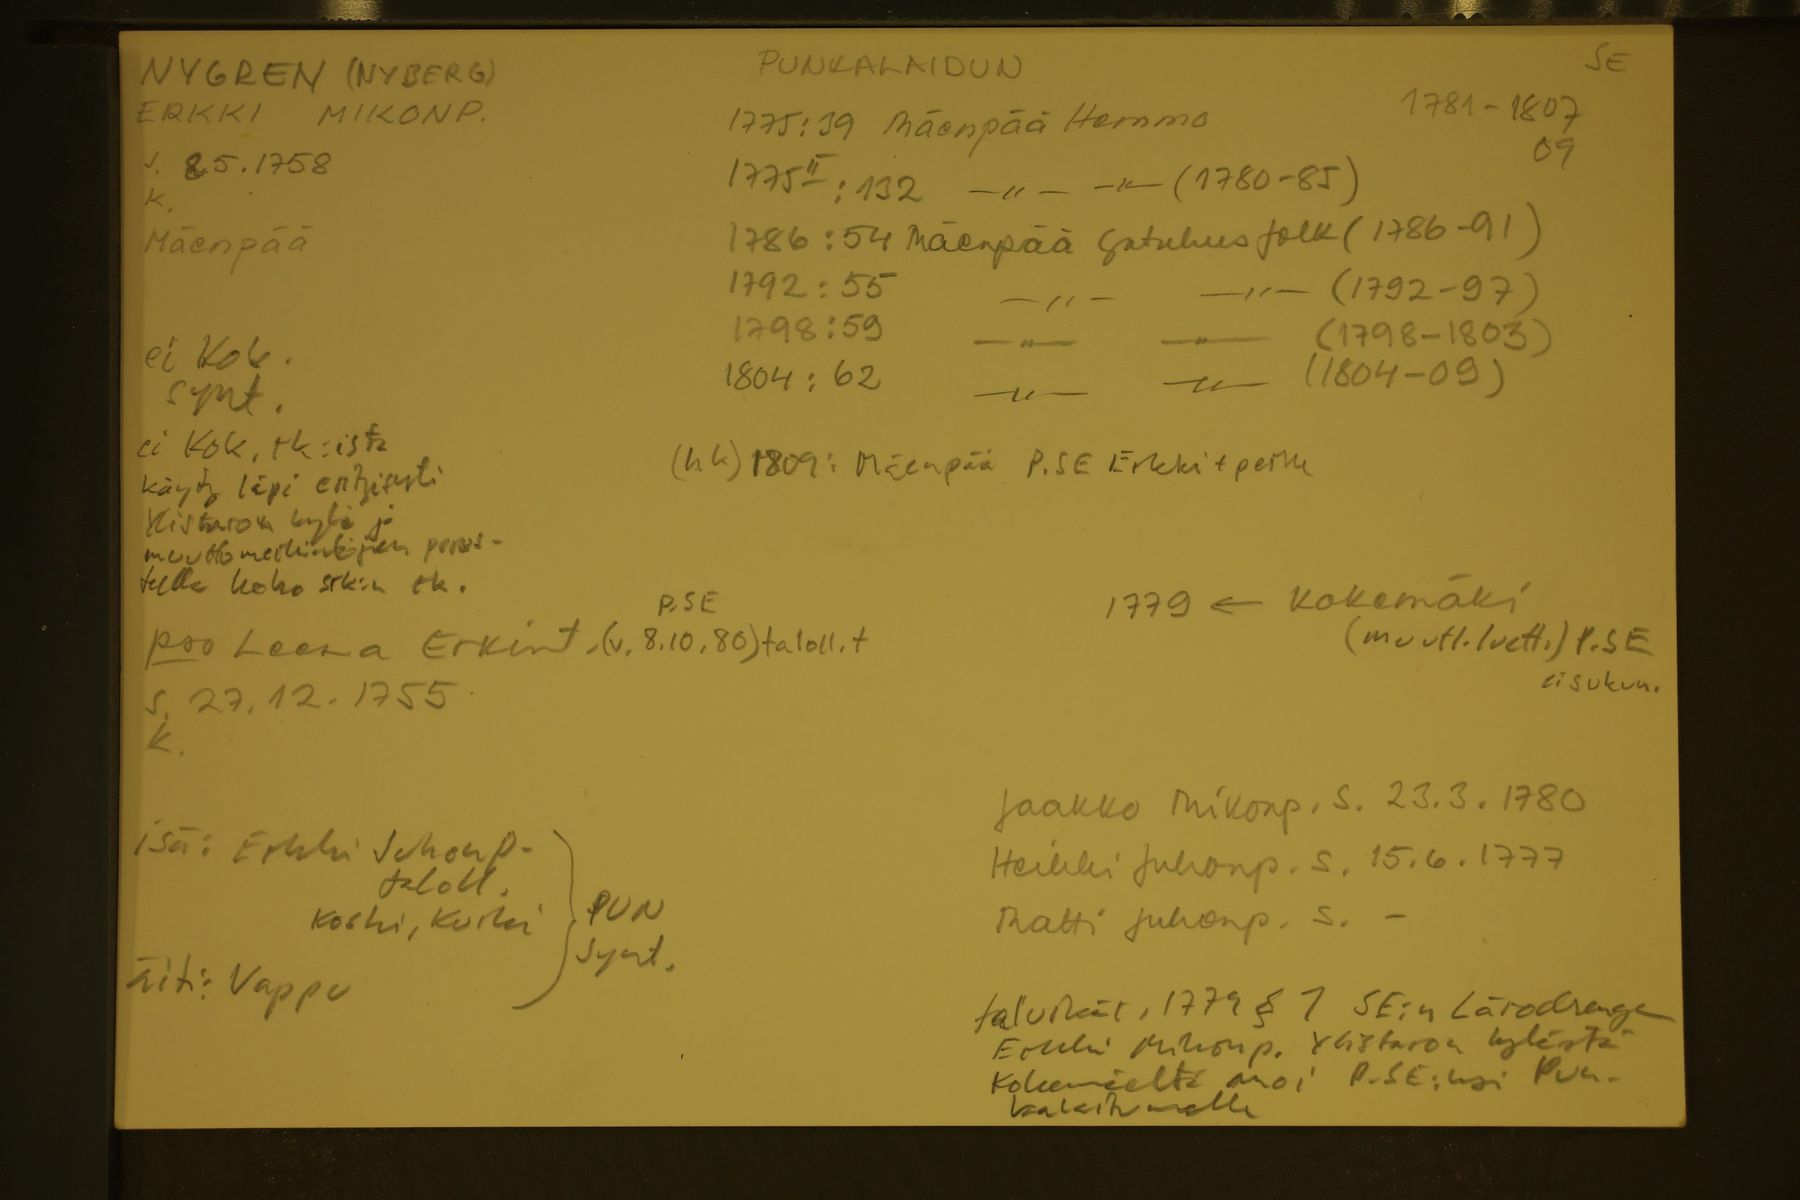 NYGREN (NYBERG)
ERKKI MIKONP.
s. 25.1758
k.
Mäenpää
PUNKALAIDUN
SE
1781-1807
09
1775:39 Mäenpää Hemma
1775II:132 -"- -"- (1780-85)
1786:54 Mäenpää Gatuhusfolk (1786-91)
1792:55 -"- -"- (1792-97)
1798:59 -"- -"- (1798-1803)
1804:62 -"- -"- (1804-09)
ei Kok.
synt.
ei Kok. rk:ista
käyty läpi erityisesti
Ylistaron kylä ja
muuttomerkintöjen perus-
teella koko srk:n rk.
(hk) 1809: Mäenpää P.SE Erkki + perhe
1779 ← Kokemäki
(muutt.luett.) P.SE
ei sukun.
P.SE
pso Leena Erkint. (v. 8.10.80) taloll.t
s. 27.12.1755
k.
isä: Erkki Juhonp.
taloll.
Koski, Kurki
äiti: Vappu
PUN
synt.
Jaakko Mikonp. s. 23.3.1780
Heikki Juhonp. s. 15.6.1777
Matti Juhonp. s. -
talvikär. 1779 § 1 SE:n Lärodrenge
Erkki Mikonp. Ylistaron kylästä
Kokemäeltä anoi P.SE:ksi Pun-
kalaitumelle